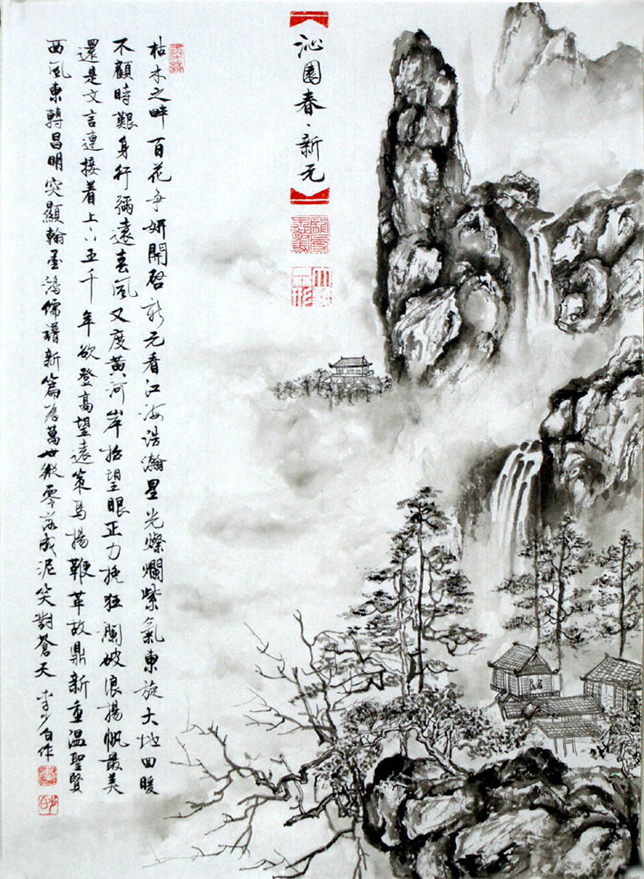 沁園春·新元
枯木之畔百花争妍開啓新元看江海浩瀚星光燦爛紫氣東旋大地回暖
不顧時艱身行彌遠春風又度黃河岸抬望眼正力挽狂瀾破浪揚帆最美
還是文言連接着上下五千年欲登高望遠策馬揚鞭革故鼎新重温聖賢
西風東轉昌明突顯翰墨鴻儒譜新篇為萬世縱零落成泥笑對蒼天 李少白作